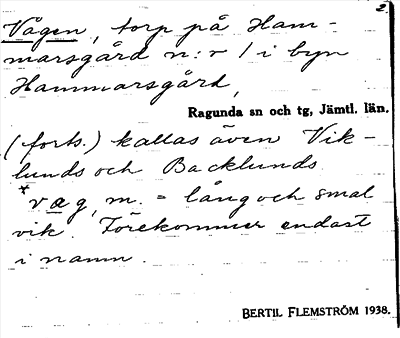 2.
Vågen, torp på Ham-
marsgård n:r 1 i byn
Hammarsgård,
Ragunda sn och tg, Jämtl. län.
(forts.) kallas även Vik-
lunds och Backlunds.
*væg, m. = lång och smal
vik. Förekommer endast
i namn.
BERTIL FLEMSTRÖM 1938.